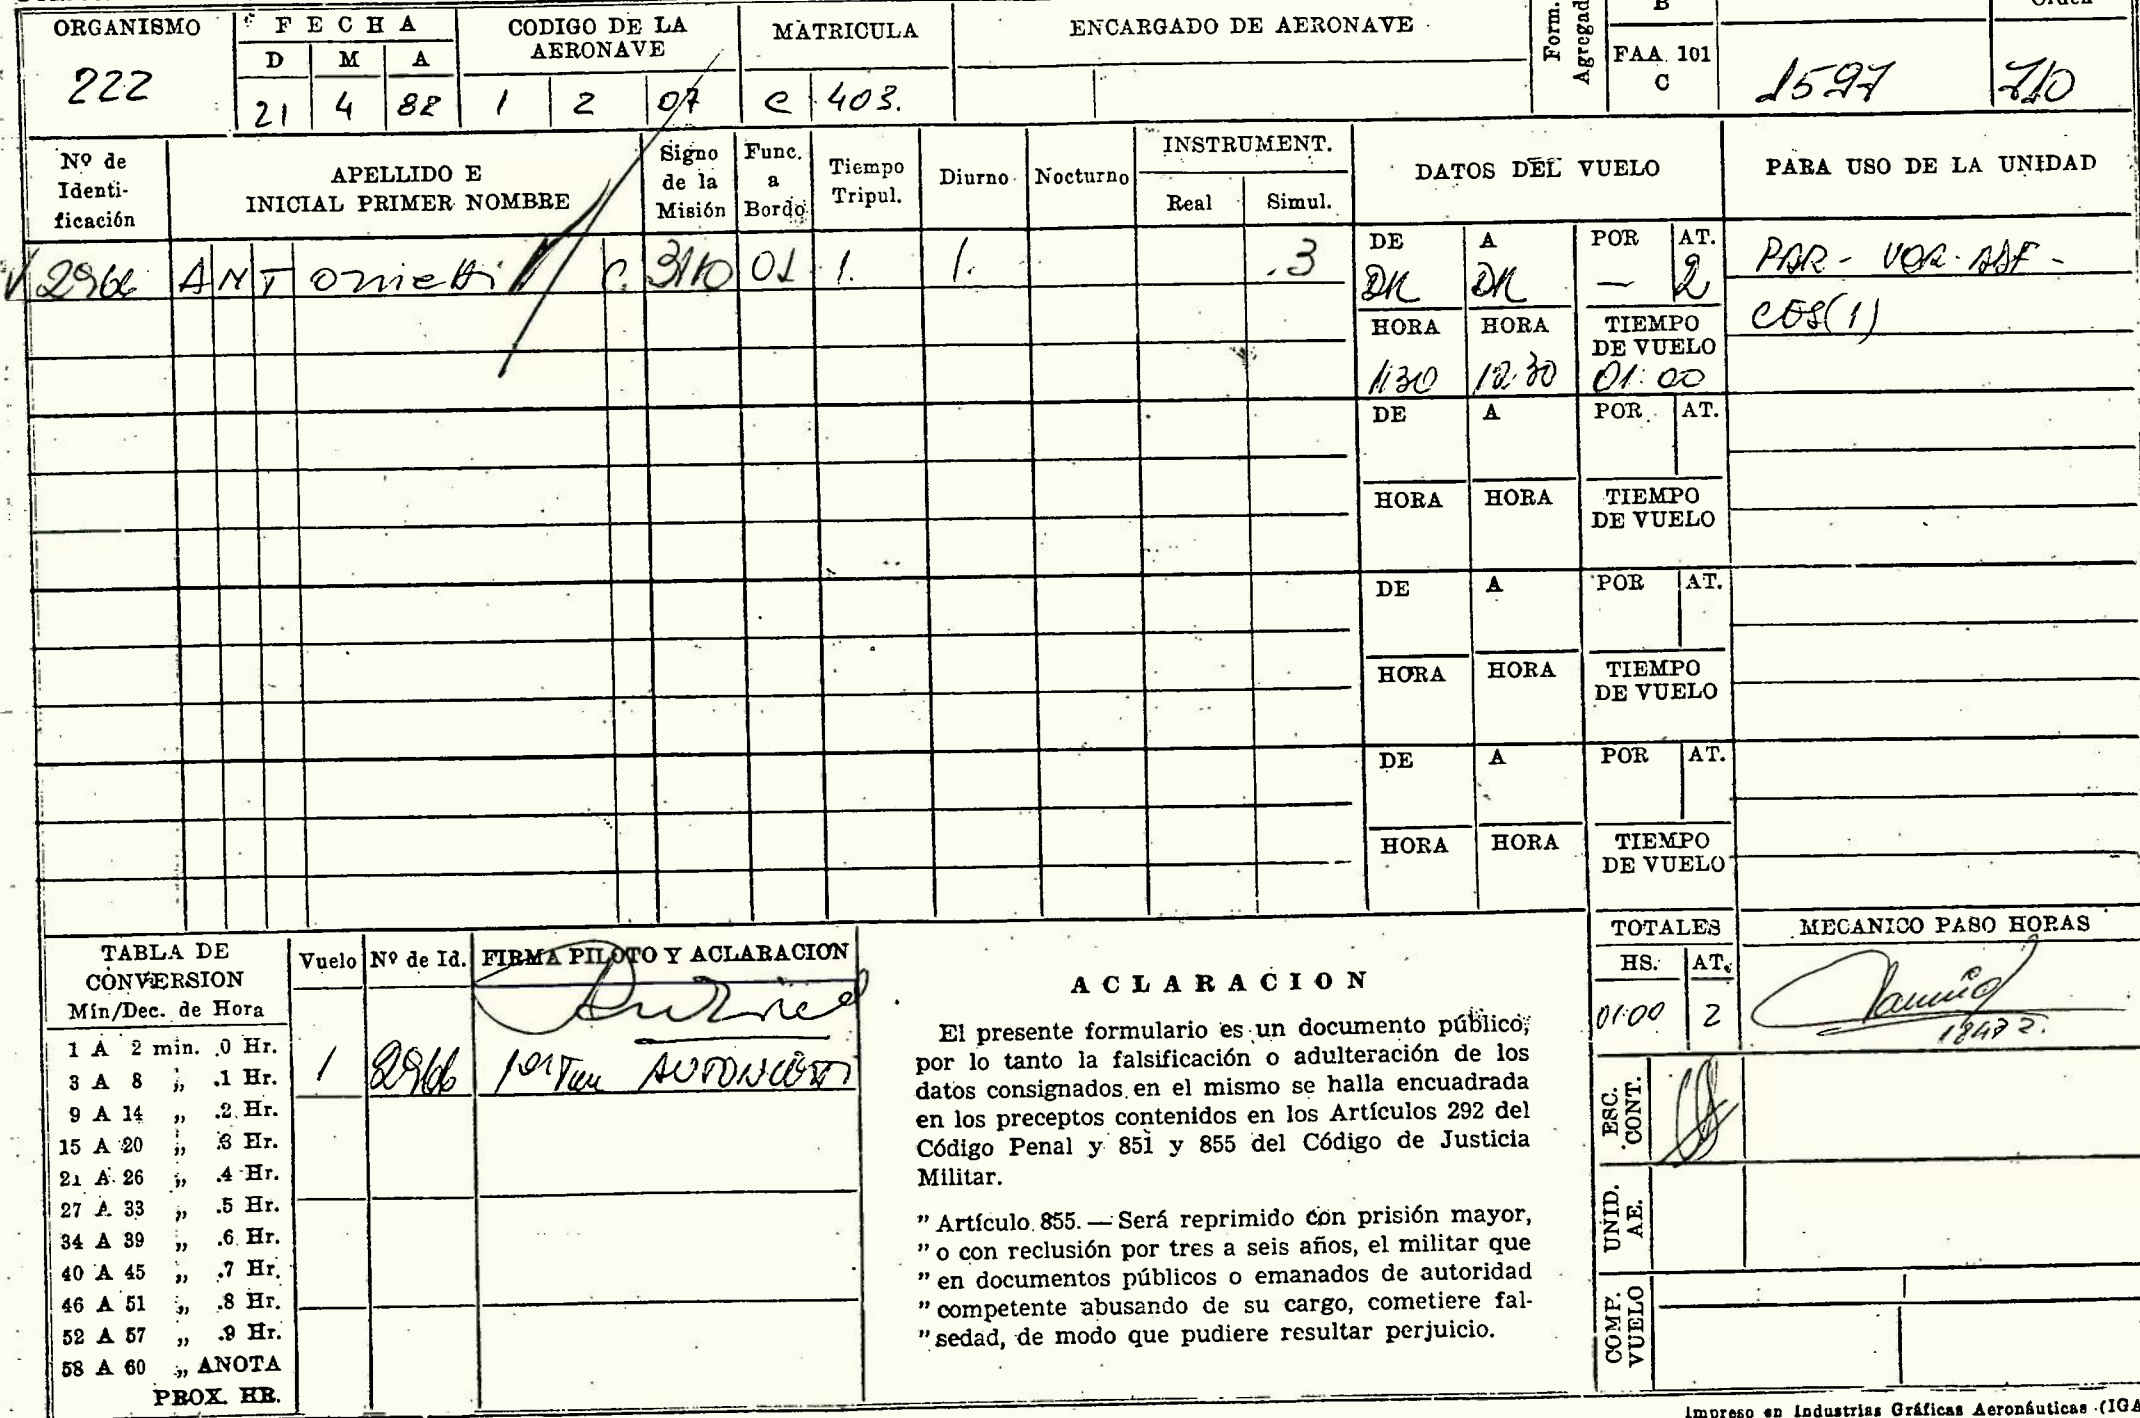 ORGANISMO
222
F E C H A
D M A
21 4 82
CODIGO DE LA
AERONAVE
1 2 07
MATRICULA
C 403.
ENCARGADO DE AERONAVE
Form.
Agregad
B
FAA. 101
C
1597
Orden
710
Nº de
Identi-
ficación
APELLIDO E
INICIAL PRIMER NOMBRE
Signo
de la
Misión
Func.
a
Bordo
Tiempo
Tripul.
Diurno
Nocturno
INSTRUMENT.
Real Simul.
DATOS DEL VUELO
PARA USO DE LA UNIDAD
2966 ANTonietti C. 3110 01 1. 1. .3
DE A POR AT.
DR DR — 2
PAR - VOR - ADF -
HORA HORA TIEMPO
DE VUELO
1130 12:30 01:00
DE A POR AT.
HORA HORA TIEMPO
DE VUELO
DE A POR AT.
HORA HORA TIEMPO
DE VUELO
DE A POR AT.
HORA HORA TIEMPO
DE VUELO
TABLA DE
CONVERSION
Min/Dec. de Hora
1 A 2 min. .0 Hr.
3 A 8 „ .1 Hr.
9 A 14 „ .2 Hr.
15 A 20 „ .3 Hr.
21 A 26 „ .4 Hr.
27 A 33 „ .5 Hr.
34 A 39 „ .6 Hr.
40 A 45 „ .7 Hr.
46 A 51 „ .8 Hr.
52 A 57 „ .9 Hr.
58 A 60 „ ANOTA
PROX. HR.
Vuelo Nº de Id. FIRMA PILOTO Y ACLARACION
1 2966 ANTONIETTI
ACLARACION
El presente formulario es un documento público,
por lo tanto la falsificación o adulteración de los
datos consignados en el mismo se halla encuadrada
en los preceptos contenidos en los Artículos 292 del
Código Penal y 851 y 855 del Código de Justicia
Militar.
” Artículo 855. — Será reprimido con prisión mayor,
” o con reclusión por tres a seis años, el militar que
” en documentos públicos o emanados de autoridad
” competente abusando de su cargo, cometiere fal-
” sedad, de modo que pudiere resultar perjuicio.
TOTALES
HS. AT.
01:00 2
MECANICO PASO HORAS
ESC.
CONT.
UNID.
AE.
COMP.
VUELO
Impreso en Industrias Gráficas Aeronáuticas (IGA